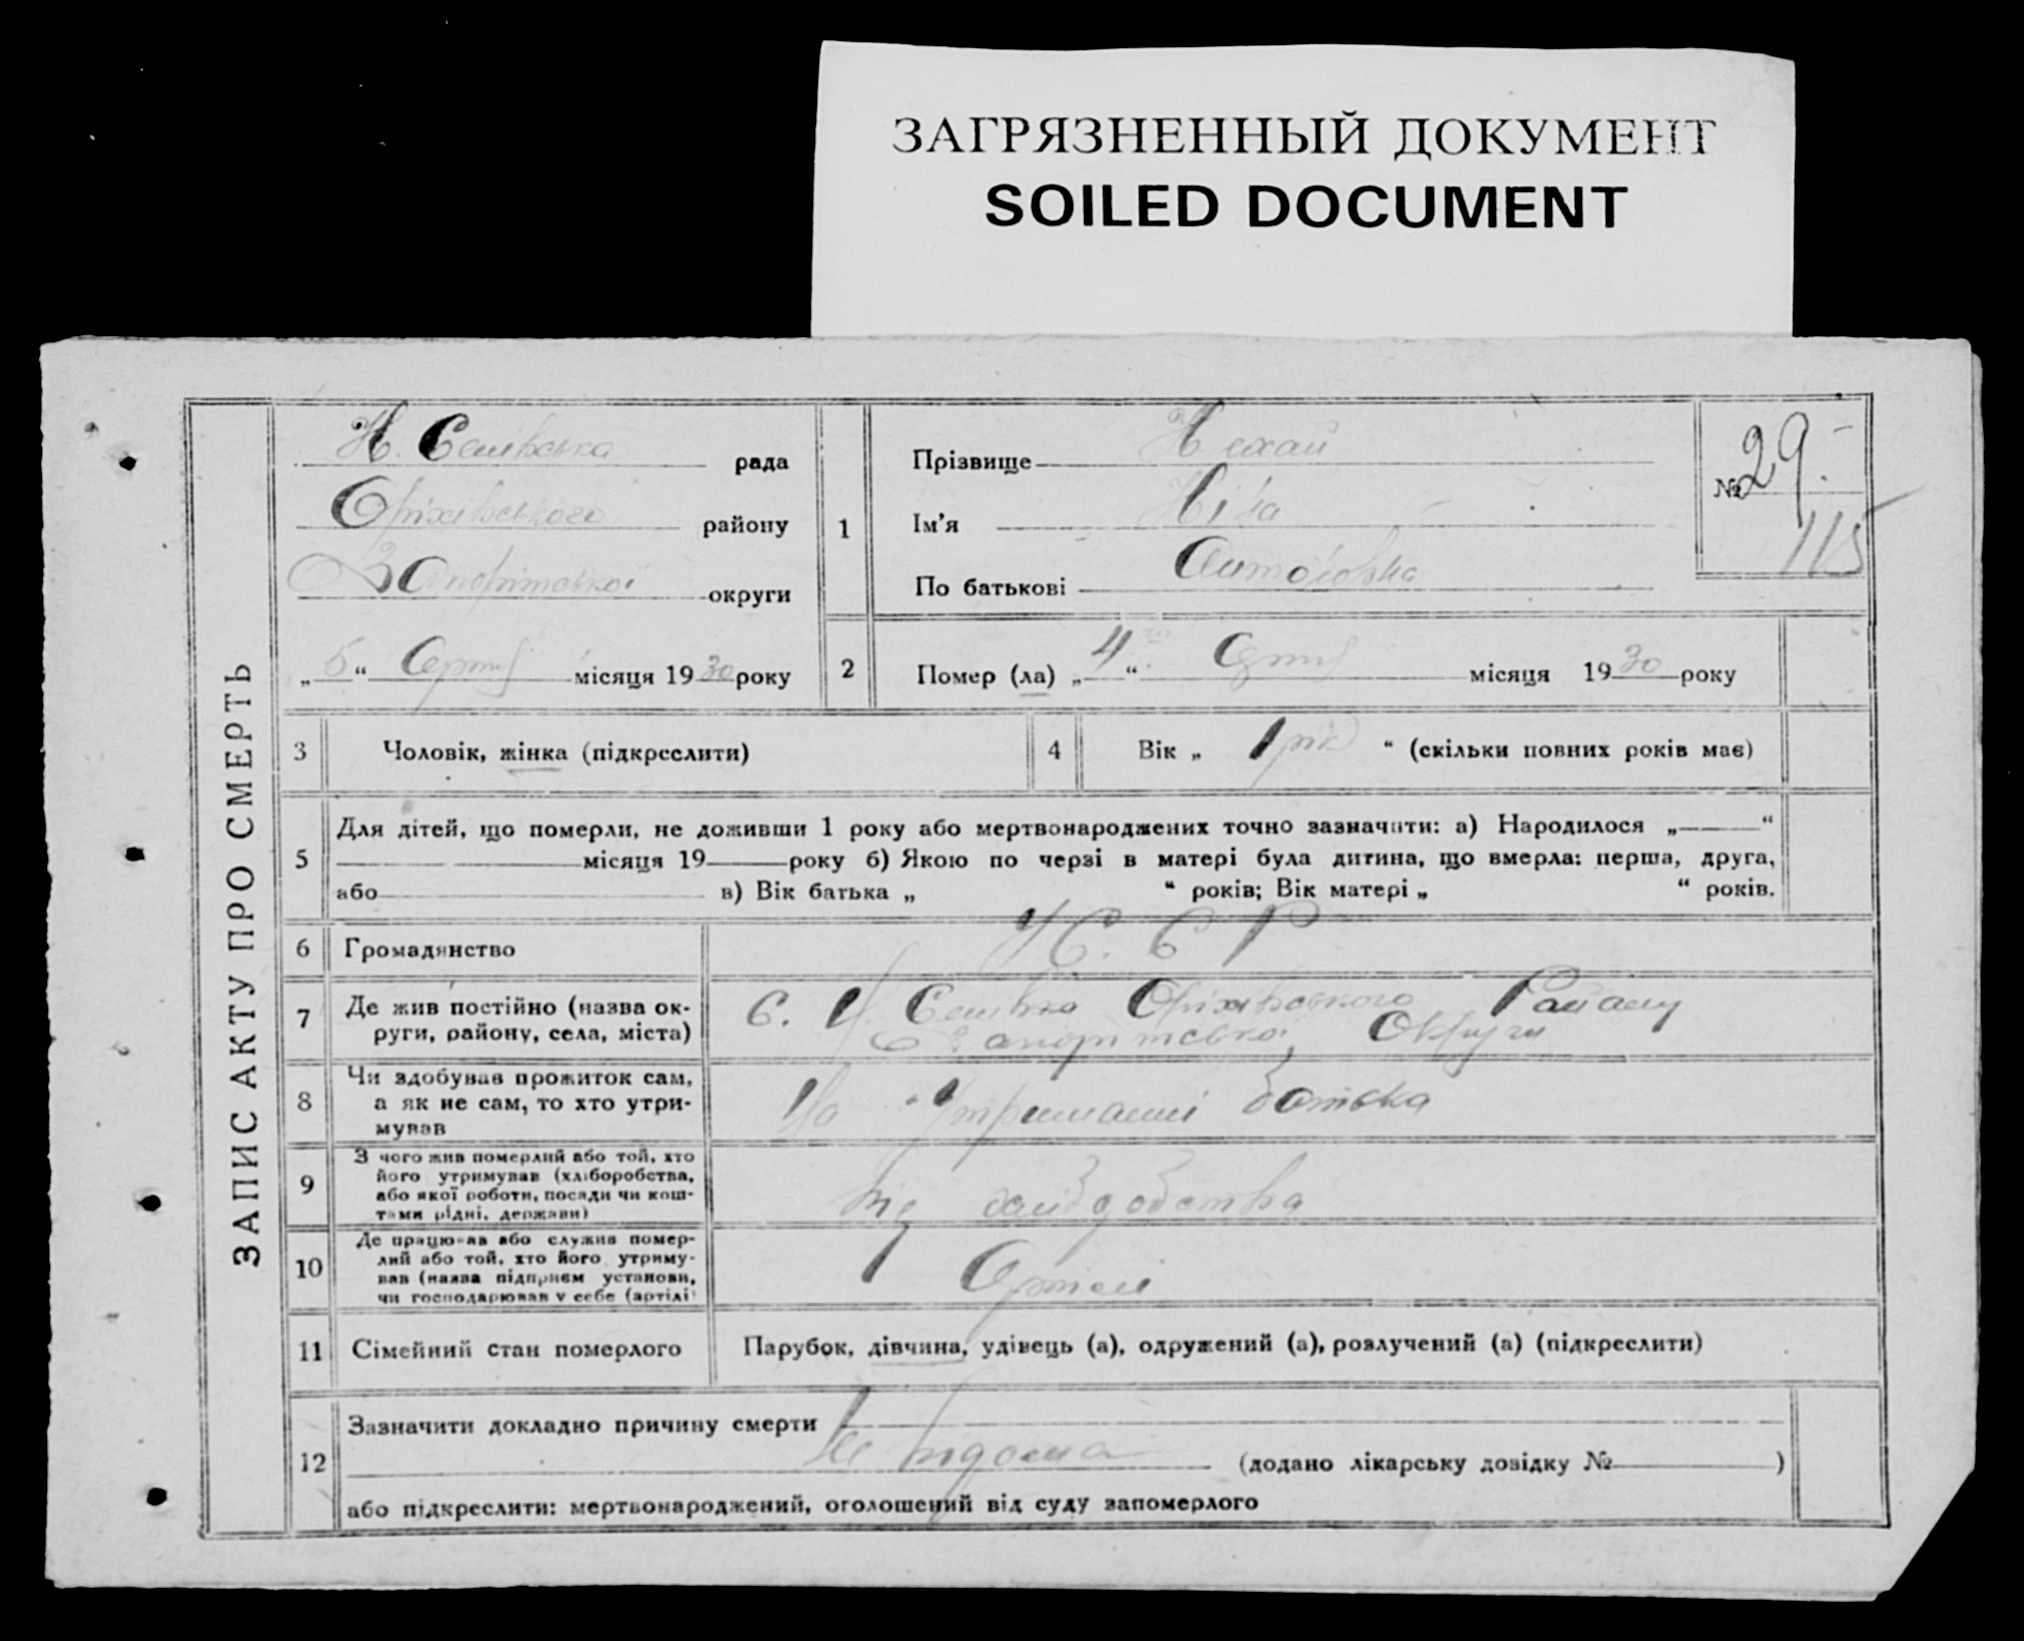 ЗАГРЯЗНЕННЫЙ ДОКУМЕНТ
SOILED DOCUMENT
ЗАПИС АКТУ ПРО СМЕРТЬ
Н. Селівська рада
Оріхівського району
Запоріжської округи
„5“ місяця 1930 року
1
Прізвище Нехай
Ім’я Ніна
По батькові
№ 29.
115
2
Помер (ла) „4“ місяця 1930 року
3 Чоловік, жінка (підкреслити)
4 Вік „ 1 рік “ (скільки повних років має)
5
Для дітей, що померли, не доживши 1 року або мертвонароджених точно зазначити: а) Народилося „ “
місяця 19 року б) Якою по черзі в матері була дитина, що вмерла: перша, друга,
або в) Вік батька „ “ років; Вік матері „ “ років.
6 Громадянство
7 Де жив постійно (назва ок-
руги, району, села, міста)
С. Н. Селівка Оріхівського Району
Округи
8 Чи здобував прожиток сам,
а як не сам, то хто утри-
мував
На утриманні батька
9 З чого жив померлий або той, хто
його утримував (хліборобства,
або якої роботи, посади чи кош-
тами рідні, держави)
від
10 Де працював або служив помер-
лий або той, хто його утриму-
вав (назва підприєм установи,
чи господарював у себе (артілі)
Артілі
11 Сімейний стан померлого
Парубок, дівчина, удівець (а), одружений (а), розлучений (а) (підкреслити)
12
Зазначити докладно причину смерти
Не відома (додано лікарську довідку № )
або підкреслити: мертвонароджений, оголошений від суду запомерлого